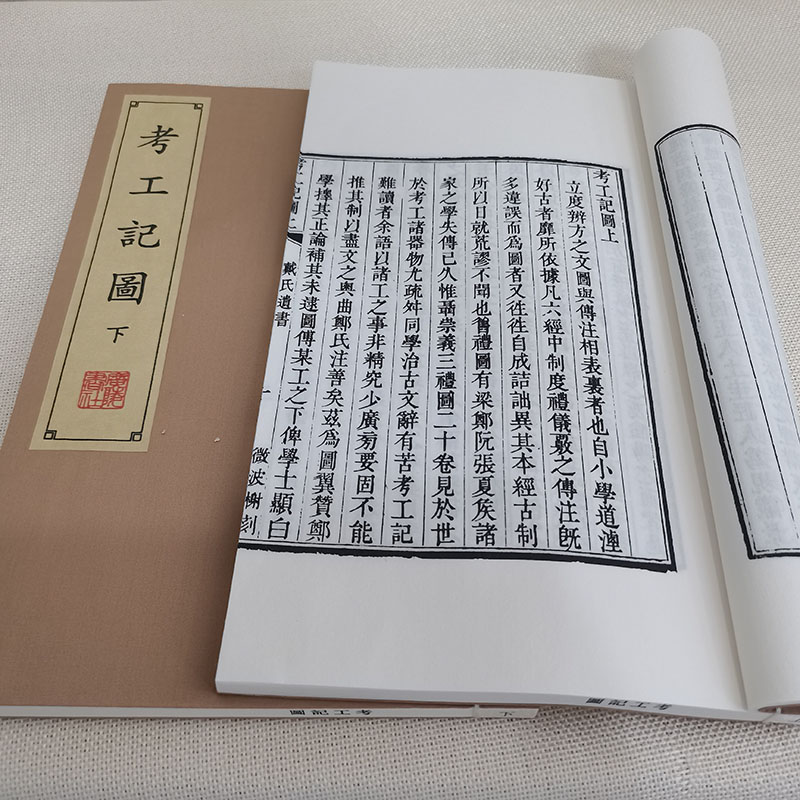 考工記圖
下
廣陵書社
考工記圖上
立度辨方之文圖與傳注相表裏者也自小學道湮
好古者靡所依據凡六經中制度禮儀覈之傳注旣
多違誤而爲圖者又徃徃自成詰詘異其本經古制
所以日就荒謬不聞也舊禮圖有梁鄭阮張夏矦諸
家之學失傳已久惟聶崇義三禮圖二十卷見於世
於考工諸器物尤疏舛同學治古文辭有苦考工記
難讀者余語以諸工之事非精究少廣旁要固不能
推其制以盡文之奧曲鄭氏注善矣茲爲圖翼贊鄭
學擇其正論補其未逮圖傅某工之下俾學士顯白
戴氏遺書
一
微波榭刻
考工記圖
下
考工記圖